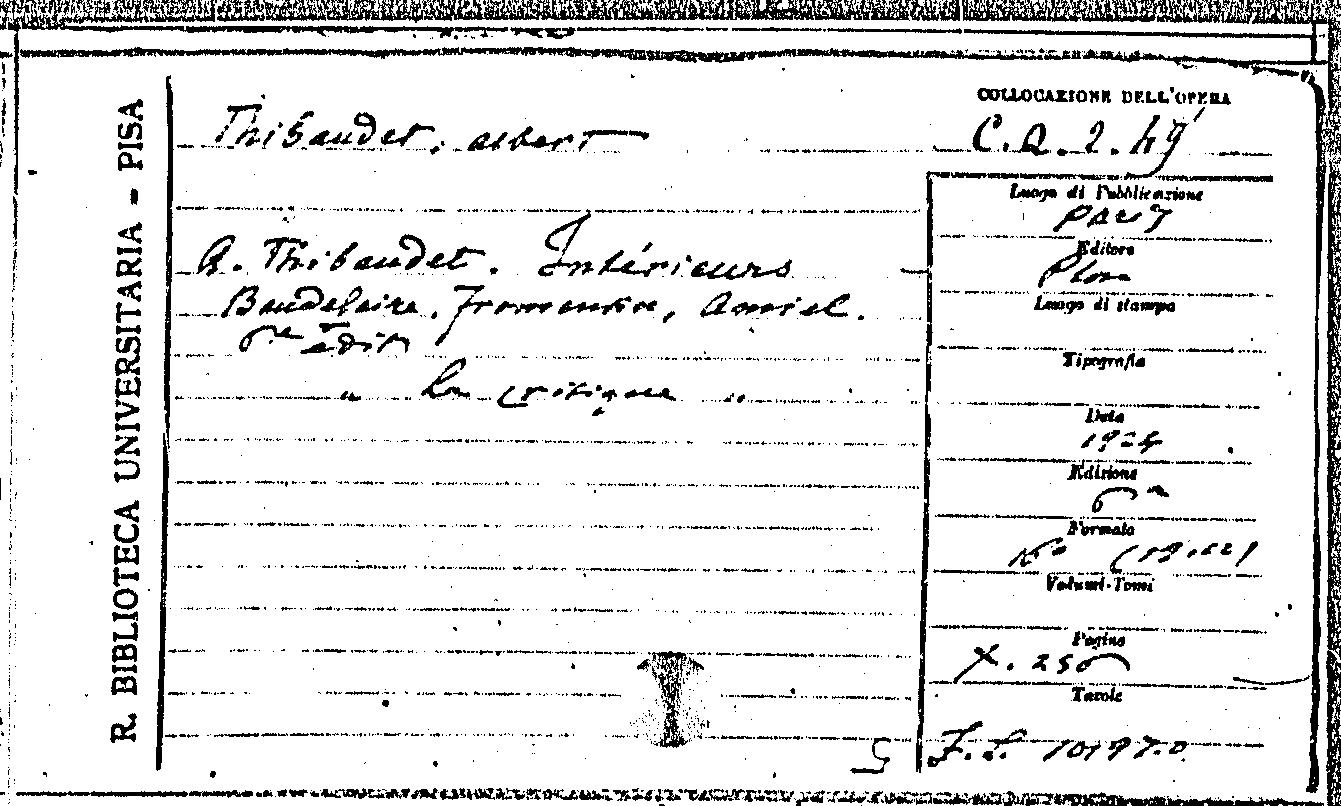 R. BIBLIOTECA UNIVERSITARIA - PISA
Thibaudet, Albert
A. Thibaudet. Intérieurs
Baudelaire, Fromentin, Amiel.
6me édit
" La critique "
COLLOCAZIONE DELL'OPERA
C.Q.2.49
Luogo di Pubblicazione
Paris
Editore
Plon
Luogo di stampa
Tipografia
Data
1924
Edizione
6a
Formato
Volumi-Tomi
Pagine
X. 256
Tavole
5
F.L. 10197.0